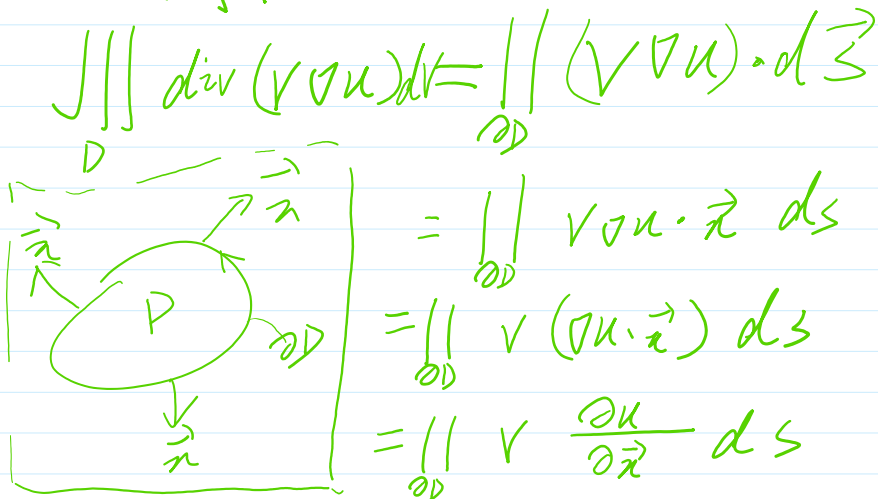 ∭_D div(v∇u)dv = ∬_∂D (v∇u)·d\vec{S}
= ∬_∂D v∇u·\vec{n} ds
= ∬_∂D v(∇u·\vec{n}) ds
= ∬_∂D v ∂u/∂\vec{n} ds
\vec{n}
\vec{n}
D
∂D
\vec{n}